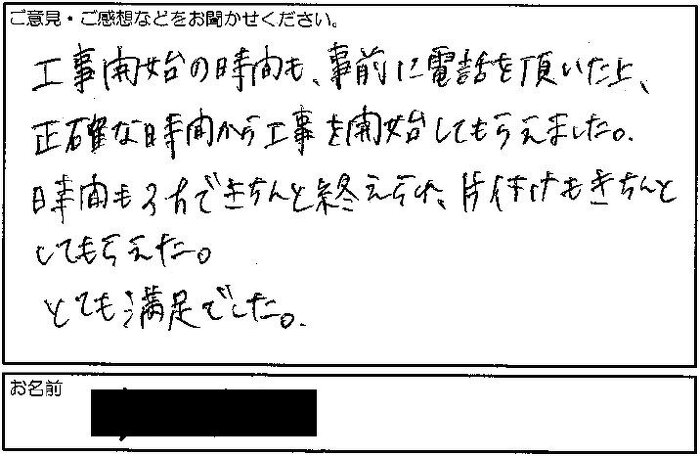 ご意見・ご感想などをお聞かせください。
工事開始の時間も、事前に電話を頂いた上、
正確な時間から工事を開始してもらえました。
時間も できちんと終えられ、片付けもきちんと
してもらえた。
とても満足でした。
お名前